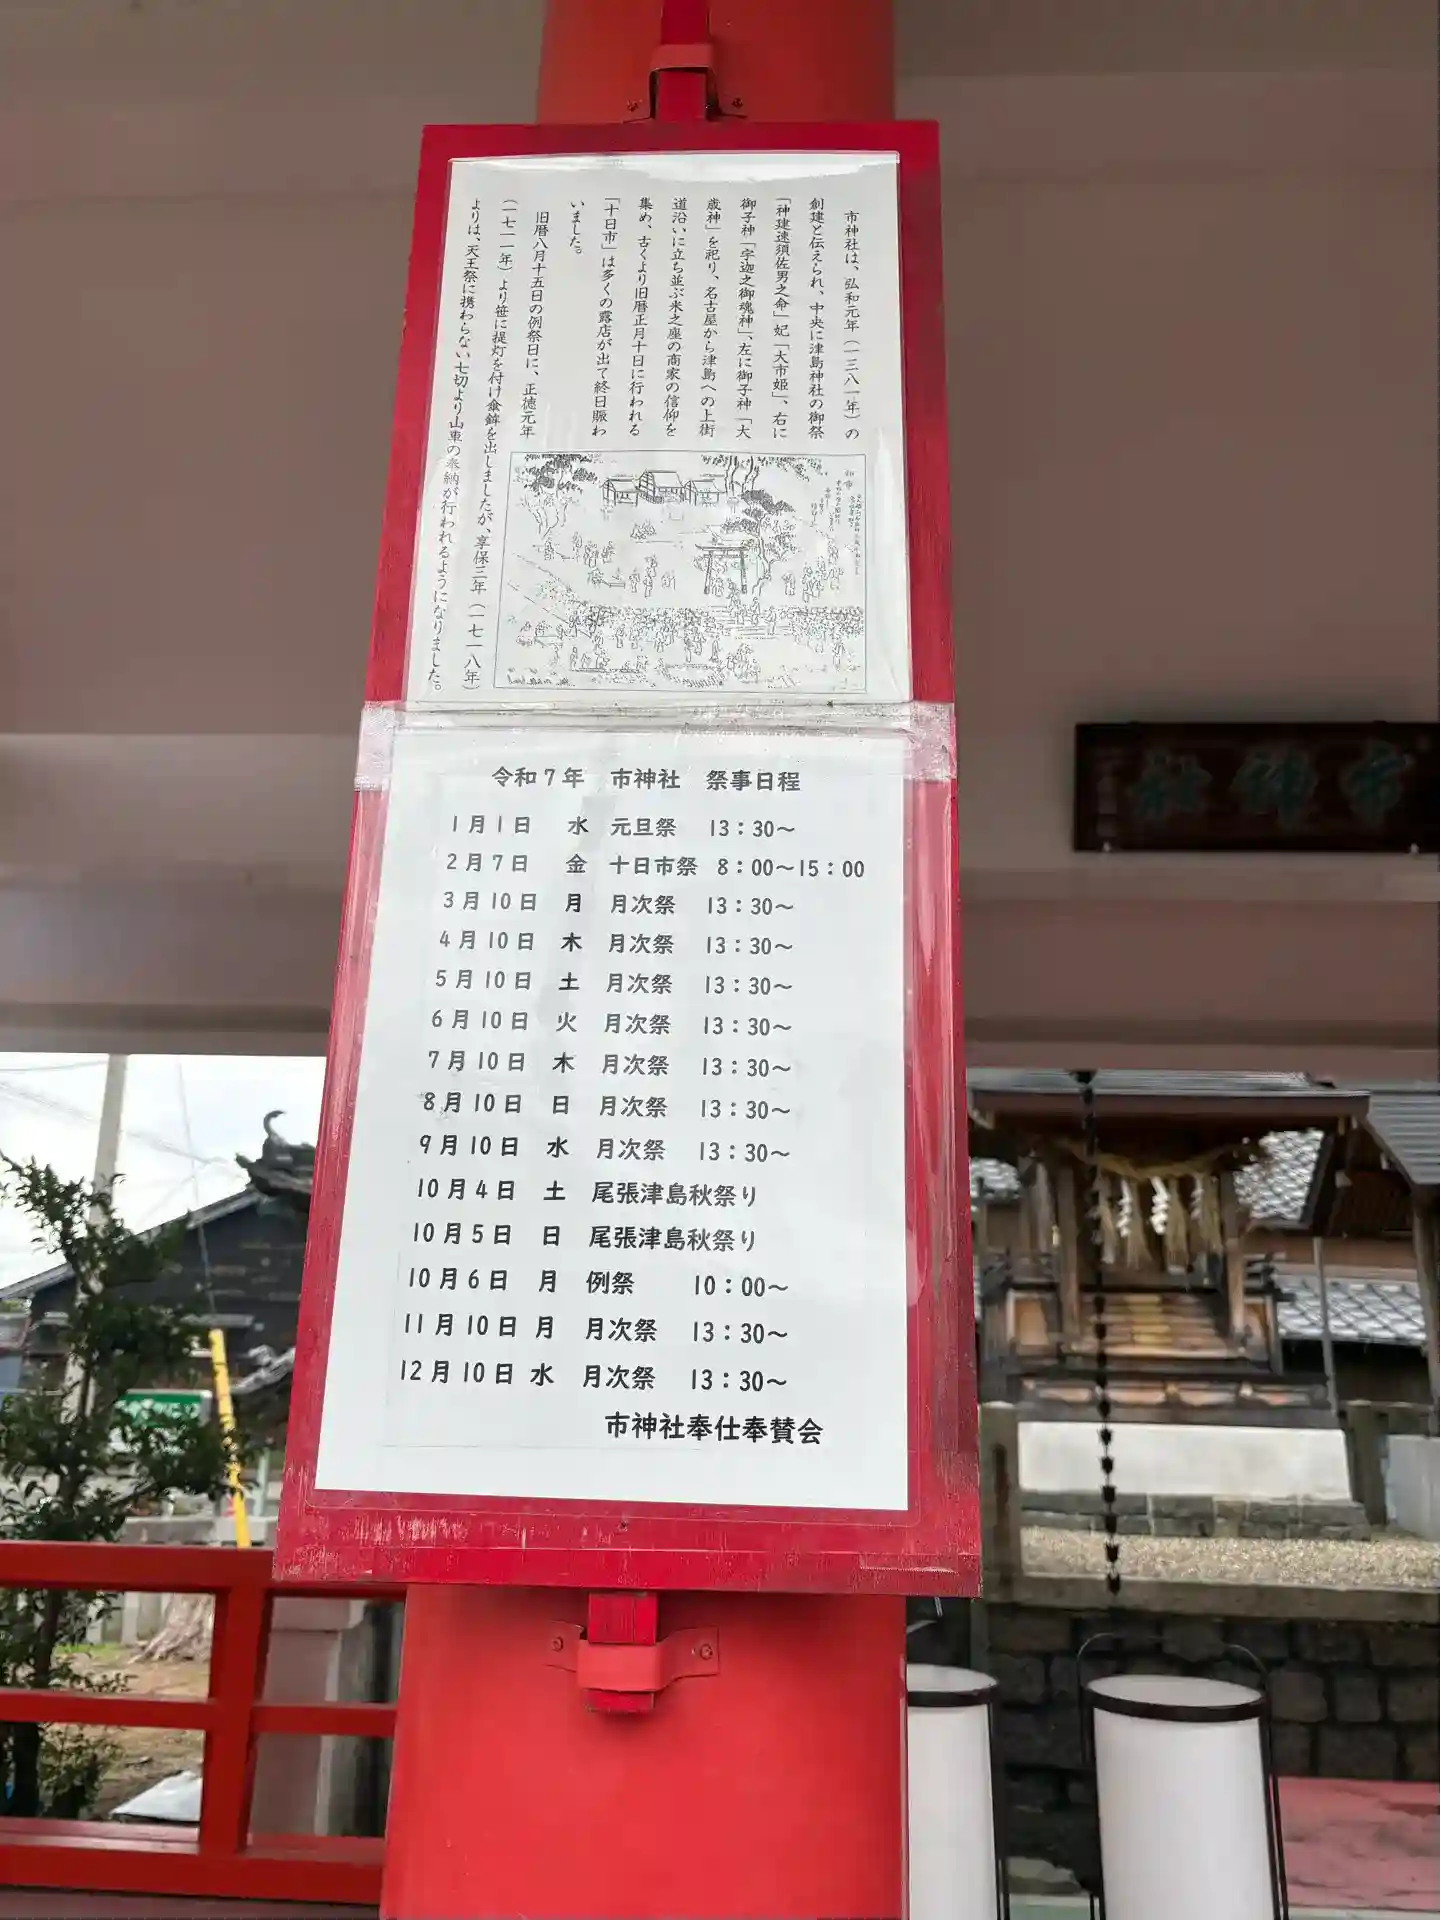 市神社は、弘和元年(一三八一年)の
創建と伝えられ、中央に津島神社の御祭
「神建速須佐男之命」妃「大市姫」、右に
御子神「宇迦之御魂神」、左に御子神「大
歳神」を祀り、名古屋から津島への上街
道沿いに立ち並ぶ米之座の商家の信仰を
集め、古くより旧暦正月十日に行われる
「十日市」は多くの露店が出て終日賑わ
いました。
旧暦八月十五日の例祭日に、正徳元年
(一七一一年)より笹に提灯を付け傘鉾を出しましたが、享保三年(一七一八年)
よりは、天王祭に携わらない七切より山車の奉納が行われるようになりました。
令和7年 市神社 祭事日程
1月1日 水 元旦祭 13:30~
2月7日 金 十日市祭 8:00~15:00
3月10日 月 月次祭 13:30~
4月10日 木 月次祭 13:30~
5月10日 土 月次祭 13:30~
6月10日 火 月次祭 13:30~
7月10日 木 月次祭 13:30~
8月10日 日 月次祭 13:30~
9月10日 水 月次祭 13:30~
10月4日 土 尾張津島秋祭り
10月5日 日 尾張津島秋祭り
10月6日 月 例祭 10:00~
11月10日 月 月次祭 13:30~
12月10日 水 月次祭 13:30~
市神社奉仕奉賛会
市神社